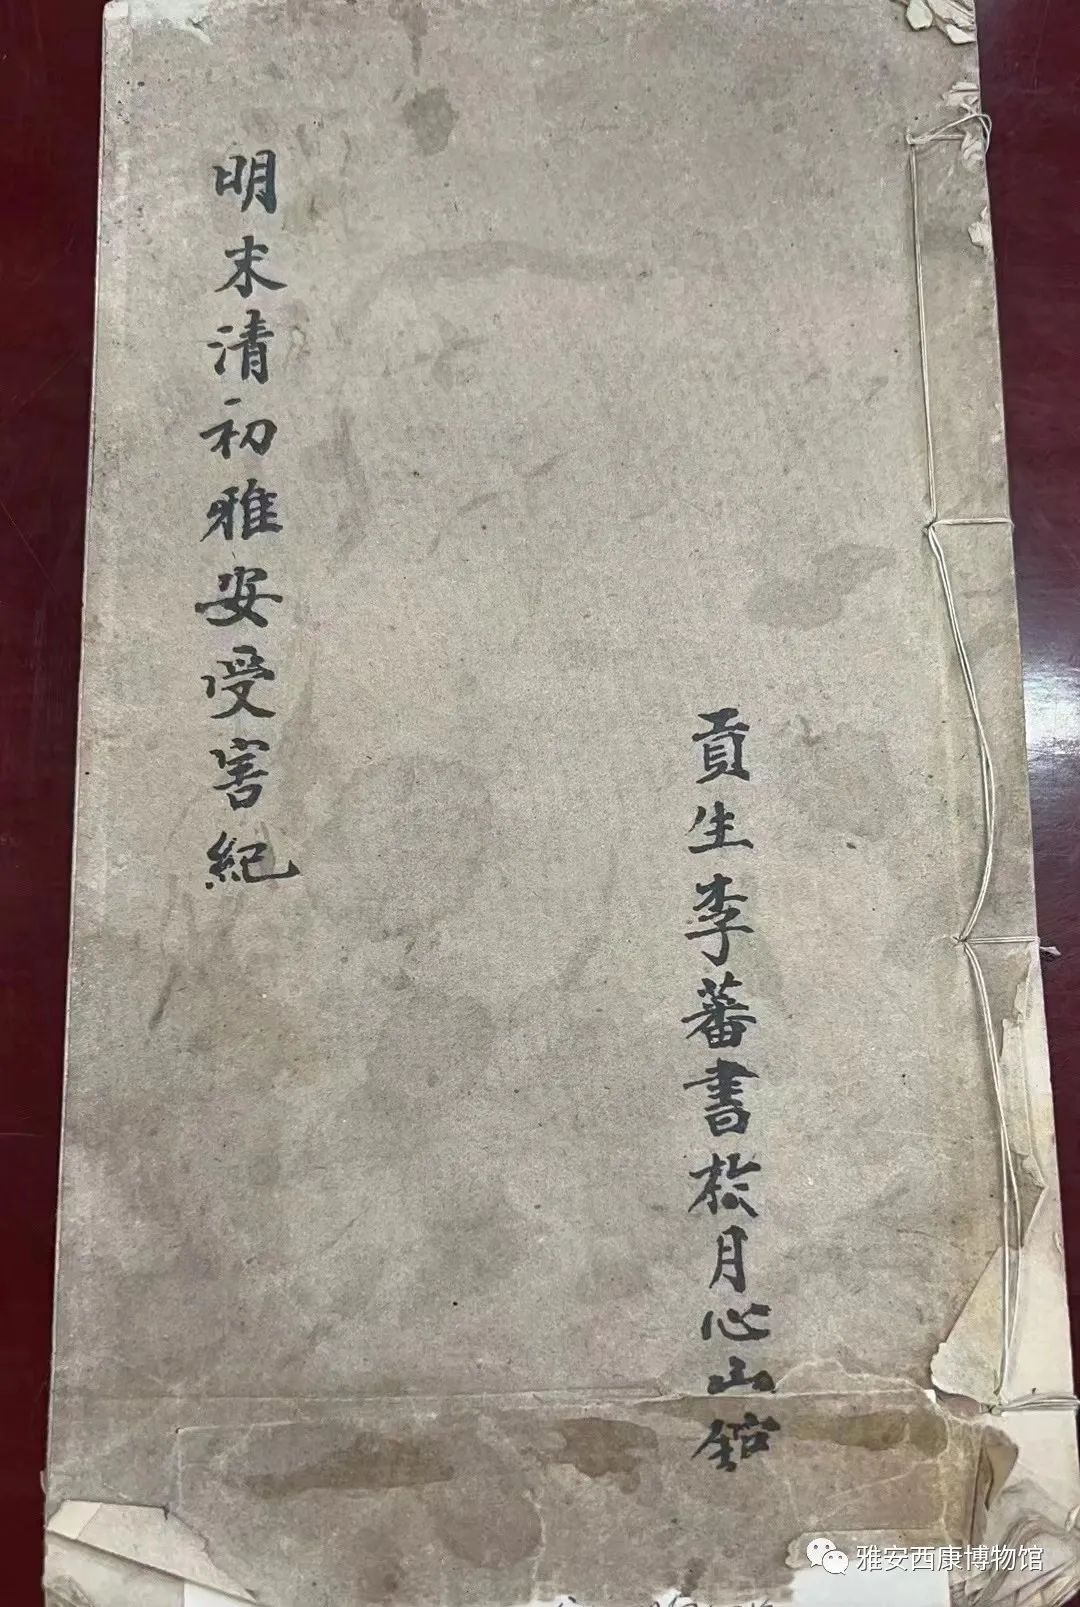 貢生李蕃書於月心山舘
明末清初雅安受害紀
雅安西康博物馆